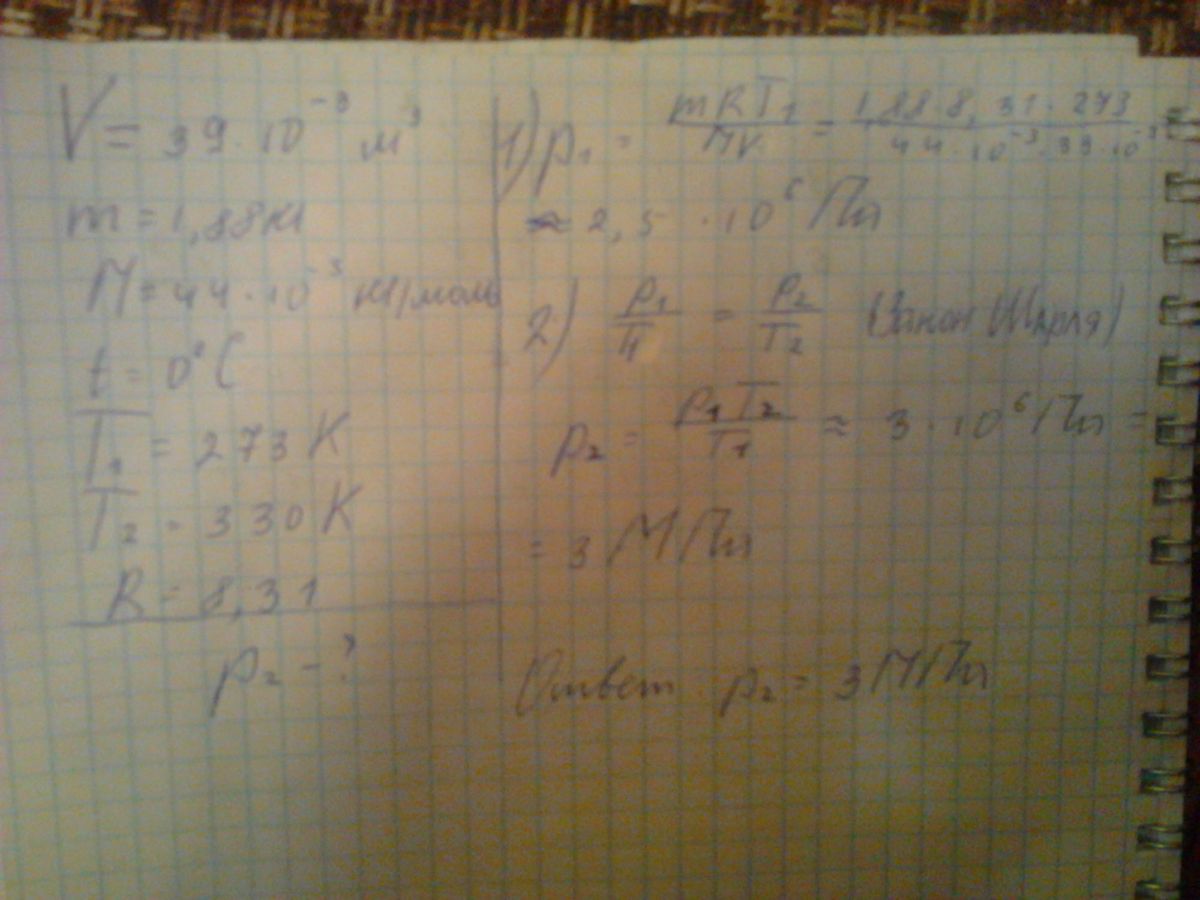 V = 39·10⁻³ м³
m = 1,88 кг
M = 44·10⁻³ кг/моль
t = 0°C
T₁ = 273 K
T₂ = 330 K
R = 8,31
p₂ - ?
1) p₁ = mRT₁/MV = 1,88·8,31·273/44·10⁻³·39·10⁻³
≈ 2,5 · 10⁶ Па
2) p₁/T₁ = p₂/T₂ (Закон Шарля)
p₂ = p₁T₂/T₁ ≈ 3·10⁶ Па =
= 3 МПа
Ответ p₂ = 3 МПа